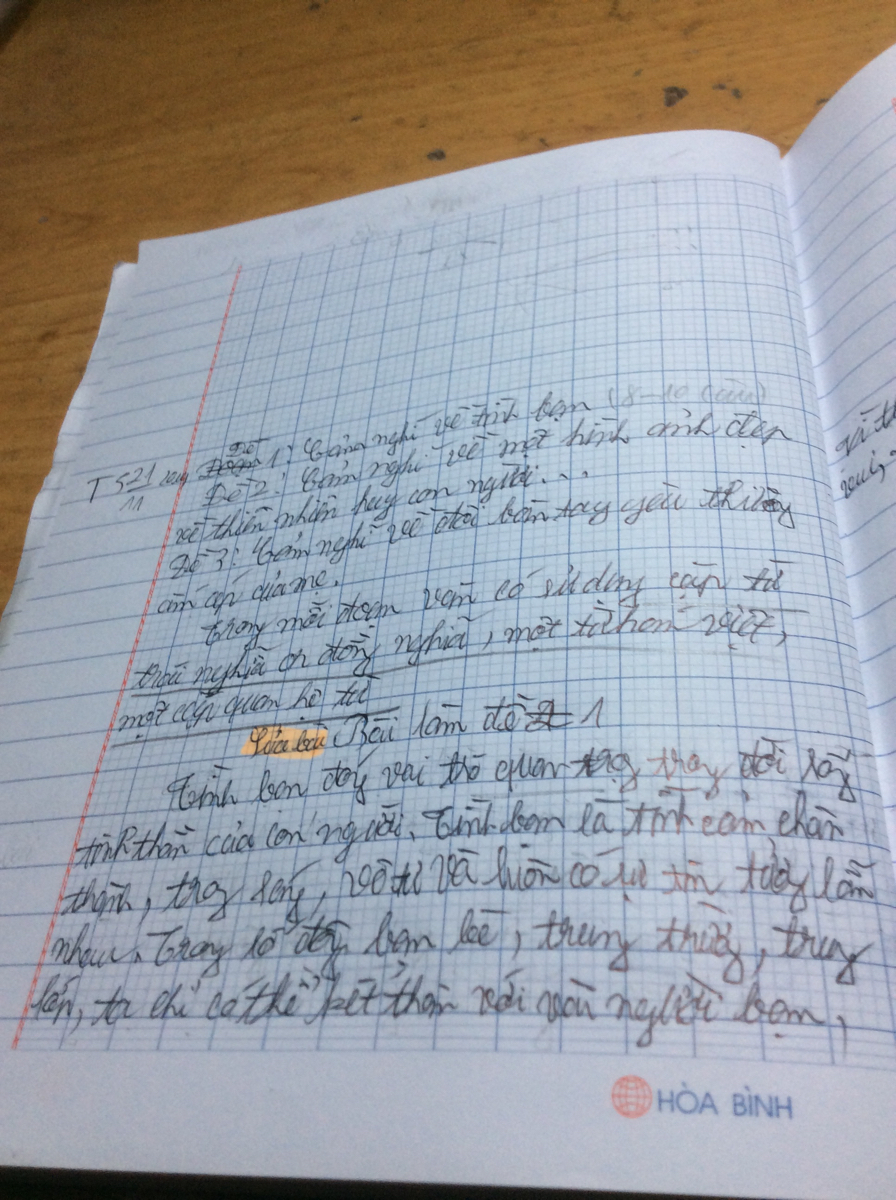 Đề 1: Cảm nghĩ về tình bạn (8-10 câu)
T521 Đề 2: Cảm nghĩ về một hình ảnh đẹp
11
về thiên nhiên hay con người...
Đề 3: Cảm nghĩ về đôi bàn tay yêu thương
của mẹ.
Trong mỗi đoạn văn có sử dụng cặp từ
trái nghĩa or đồng nghĩa, một từ hán việt,
một cặp quan hệ từ
Bài làm đề 1
Tình bạn đóng vai trò quan trọng trong đời sống
tinh thần của con người. Tình bạn là tình cảm chân
thành, trong sáng, vô tư và luôn có sự tin tưởng lẫn
nhau. Trong số bạn bè, trung trường, trung
lớp, ta chỉ có thể kết thân với vài người bạn,
HÒA BÌNH